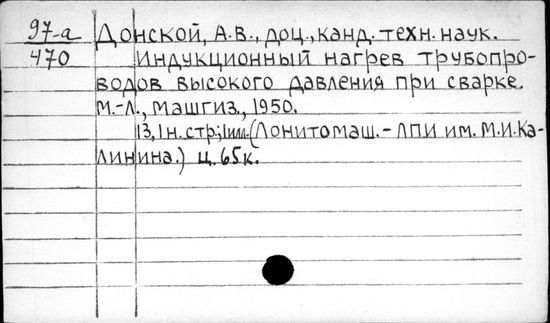 97-а Донской, А.В., доц., канд. техн. наук.
470 Индукционный нагрев трубопро-
водов высокого давления при сварке.
М.-Л., Машгиз, 1950.
13, 1 н. стр; 1 илл. (Лонитомаш. - ЛПИ им. М.И. Ка-
линина.) ц. 65 к.